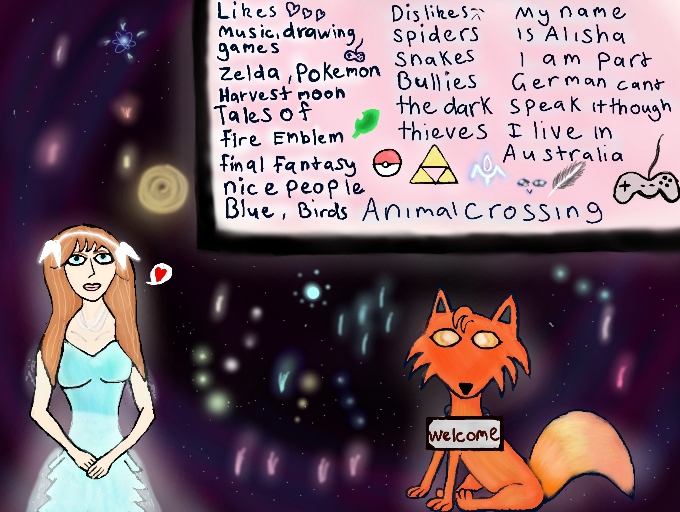 Likes
Music, drawing,
games
Zelda, Pokemon
Harvest moon
Tales of
fire Emblem
final fantasy
nice people
Blue, Birds
Animal Crossing
Dislikes
spiders
snakes
Bullies
the dark
thieves
My name
Is Alisha
I am part
German cant
speak it though
I live in
Australia
welcome